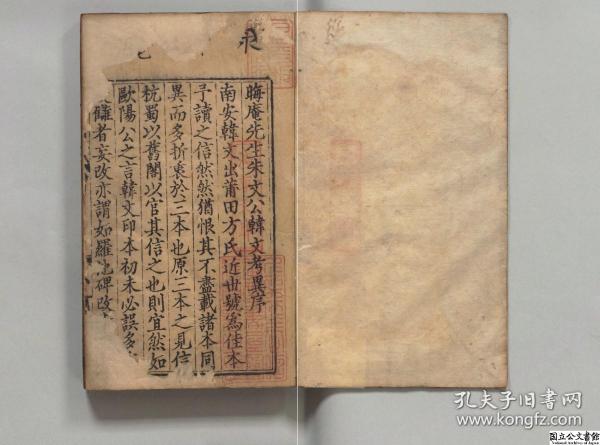 晦庵先生朱文公韓文考異序
南安韓文出莆田方氏近世號為佳本
予讀之信然然猶恨其不盡載諸本同
異而多折衷於三本也原三本之見信
杭蜀以舊閣以官其信之也則宜然如
歐陽公之言韓文印本初未必誤多
讎者妄改亦謂如羅池碑改
孔夫子旧书网
www.kongfz.com
国立公文書館
National Archives of Japan